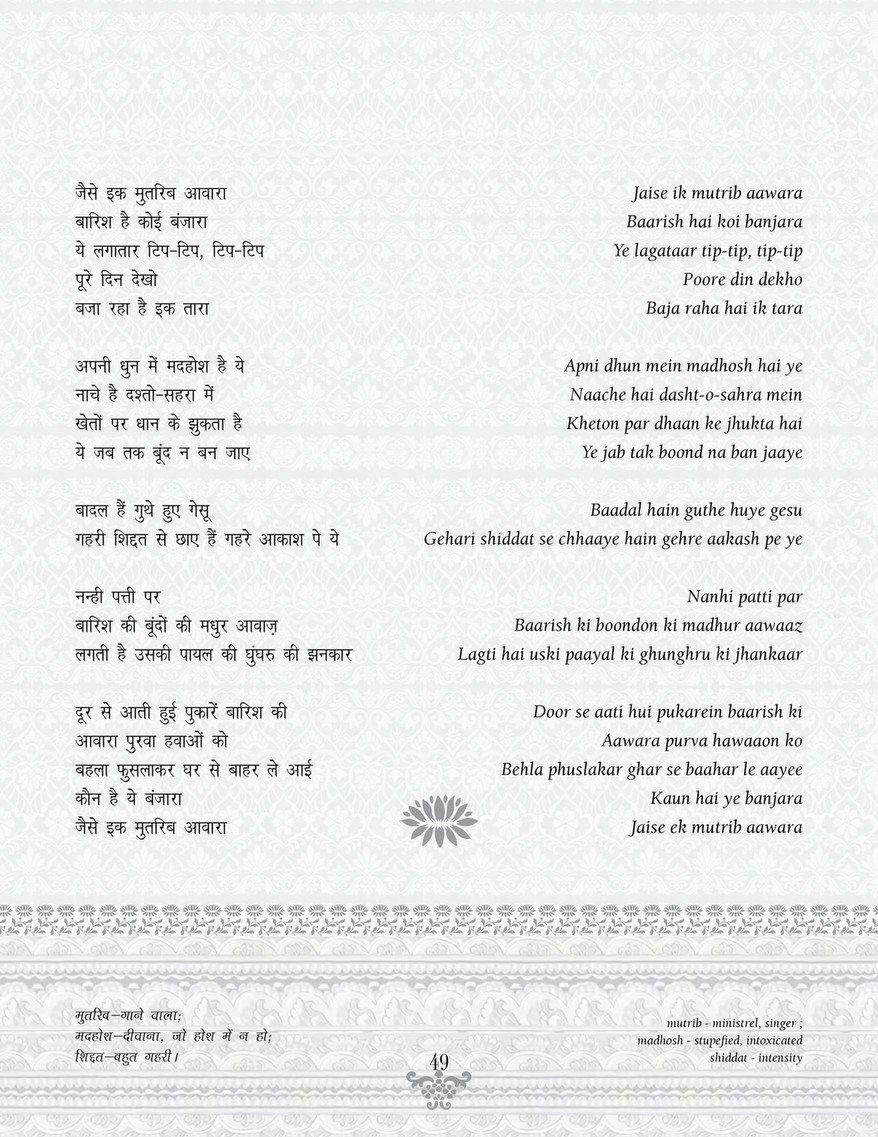 जैसे इक मुतरिब आवारा
बारिश है कोई बंजारा
ये लगातार टिप-टिप, टिप-टिप
पूरे दिन देखो
बजा रहा है इक तारा
अपनी धुन में मदहोश है ये
नाचे है दश्तो-सहरा में
खेतों पर धान के झुकता है
ये जब तक बूंद न बन जाए
बादल हैं गुथे हुए गेसू
गहरी शिद्दत से छाए हैं गहरे आकाश पे ये
नन्ही पत्ती पर
बारिश की बूंदों की मधुर आवाज़
लगती है उसकी पायल की घुंघरु की झनकार
दूर से आती हुई पुकारें बारिश की
आवारा पुरवा हवाओं को
बहला फुसलाकर घर से बाहर ले आई
कौन है ये बंजारा
जैसे इक मुतरिब आवारा
Jaise ik mutrib aawara
Baarish hai koi banjara
Ye lagataar tip-tip, tip-tip
Poore din dekho
Baja raha hai ik tara
Apni dhun mein madhosh hai ye
Naache hai dasht-o-sahra mein
Kheton par dhaan ke jhukta hai
Ye jab tak boond na ban jaaye
Baadal hain guthe huye gesu
Gehari shiddat se chhaaye hain gehre aakash pe ye
Nanhi patti par
Baarish ki boondon ki madhur aawaaz
Lagti hai uski paayal ki ghunghru ki jhankaar
Door se aati hui pukarein baarish ki
Aawara purva hawaaon ko
Behla phuslakar ghar se baahar le aayee
Kaun hai ye banjara
Jaise ek mutrib aawara
मुतरिब–गाने वाला;
मदहोश–दीवाना, जो होश में न हो;
शिद्दत–बहुत गहरी।
mutrib - ministrel, singer ;
madhosh - stupefied, intoxicated
shiddat - intensity
49